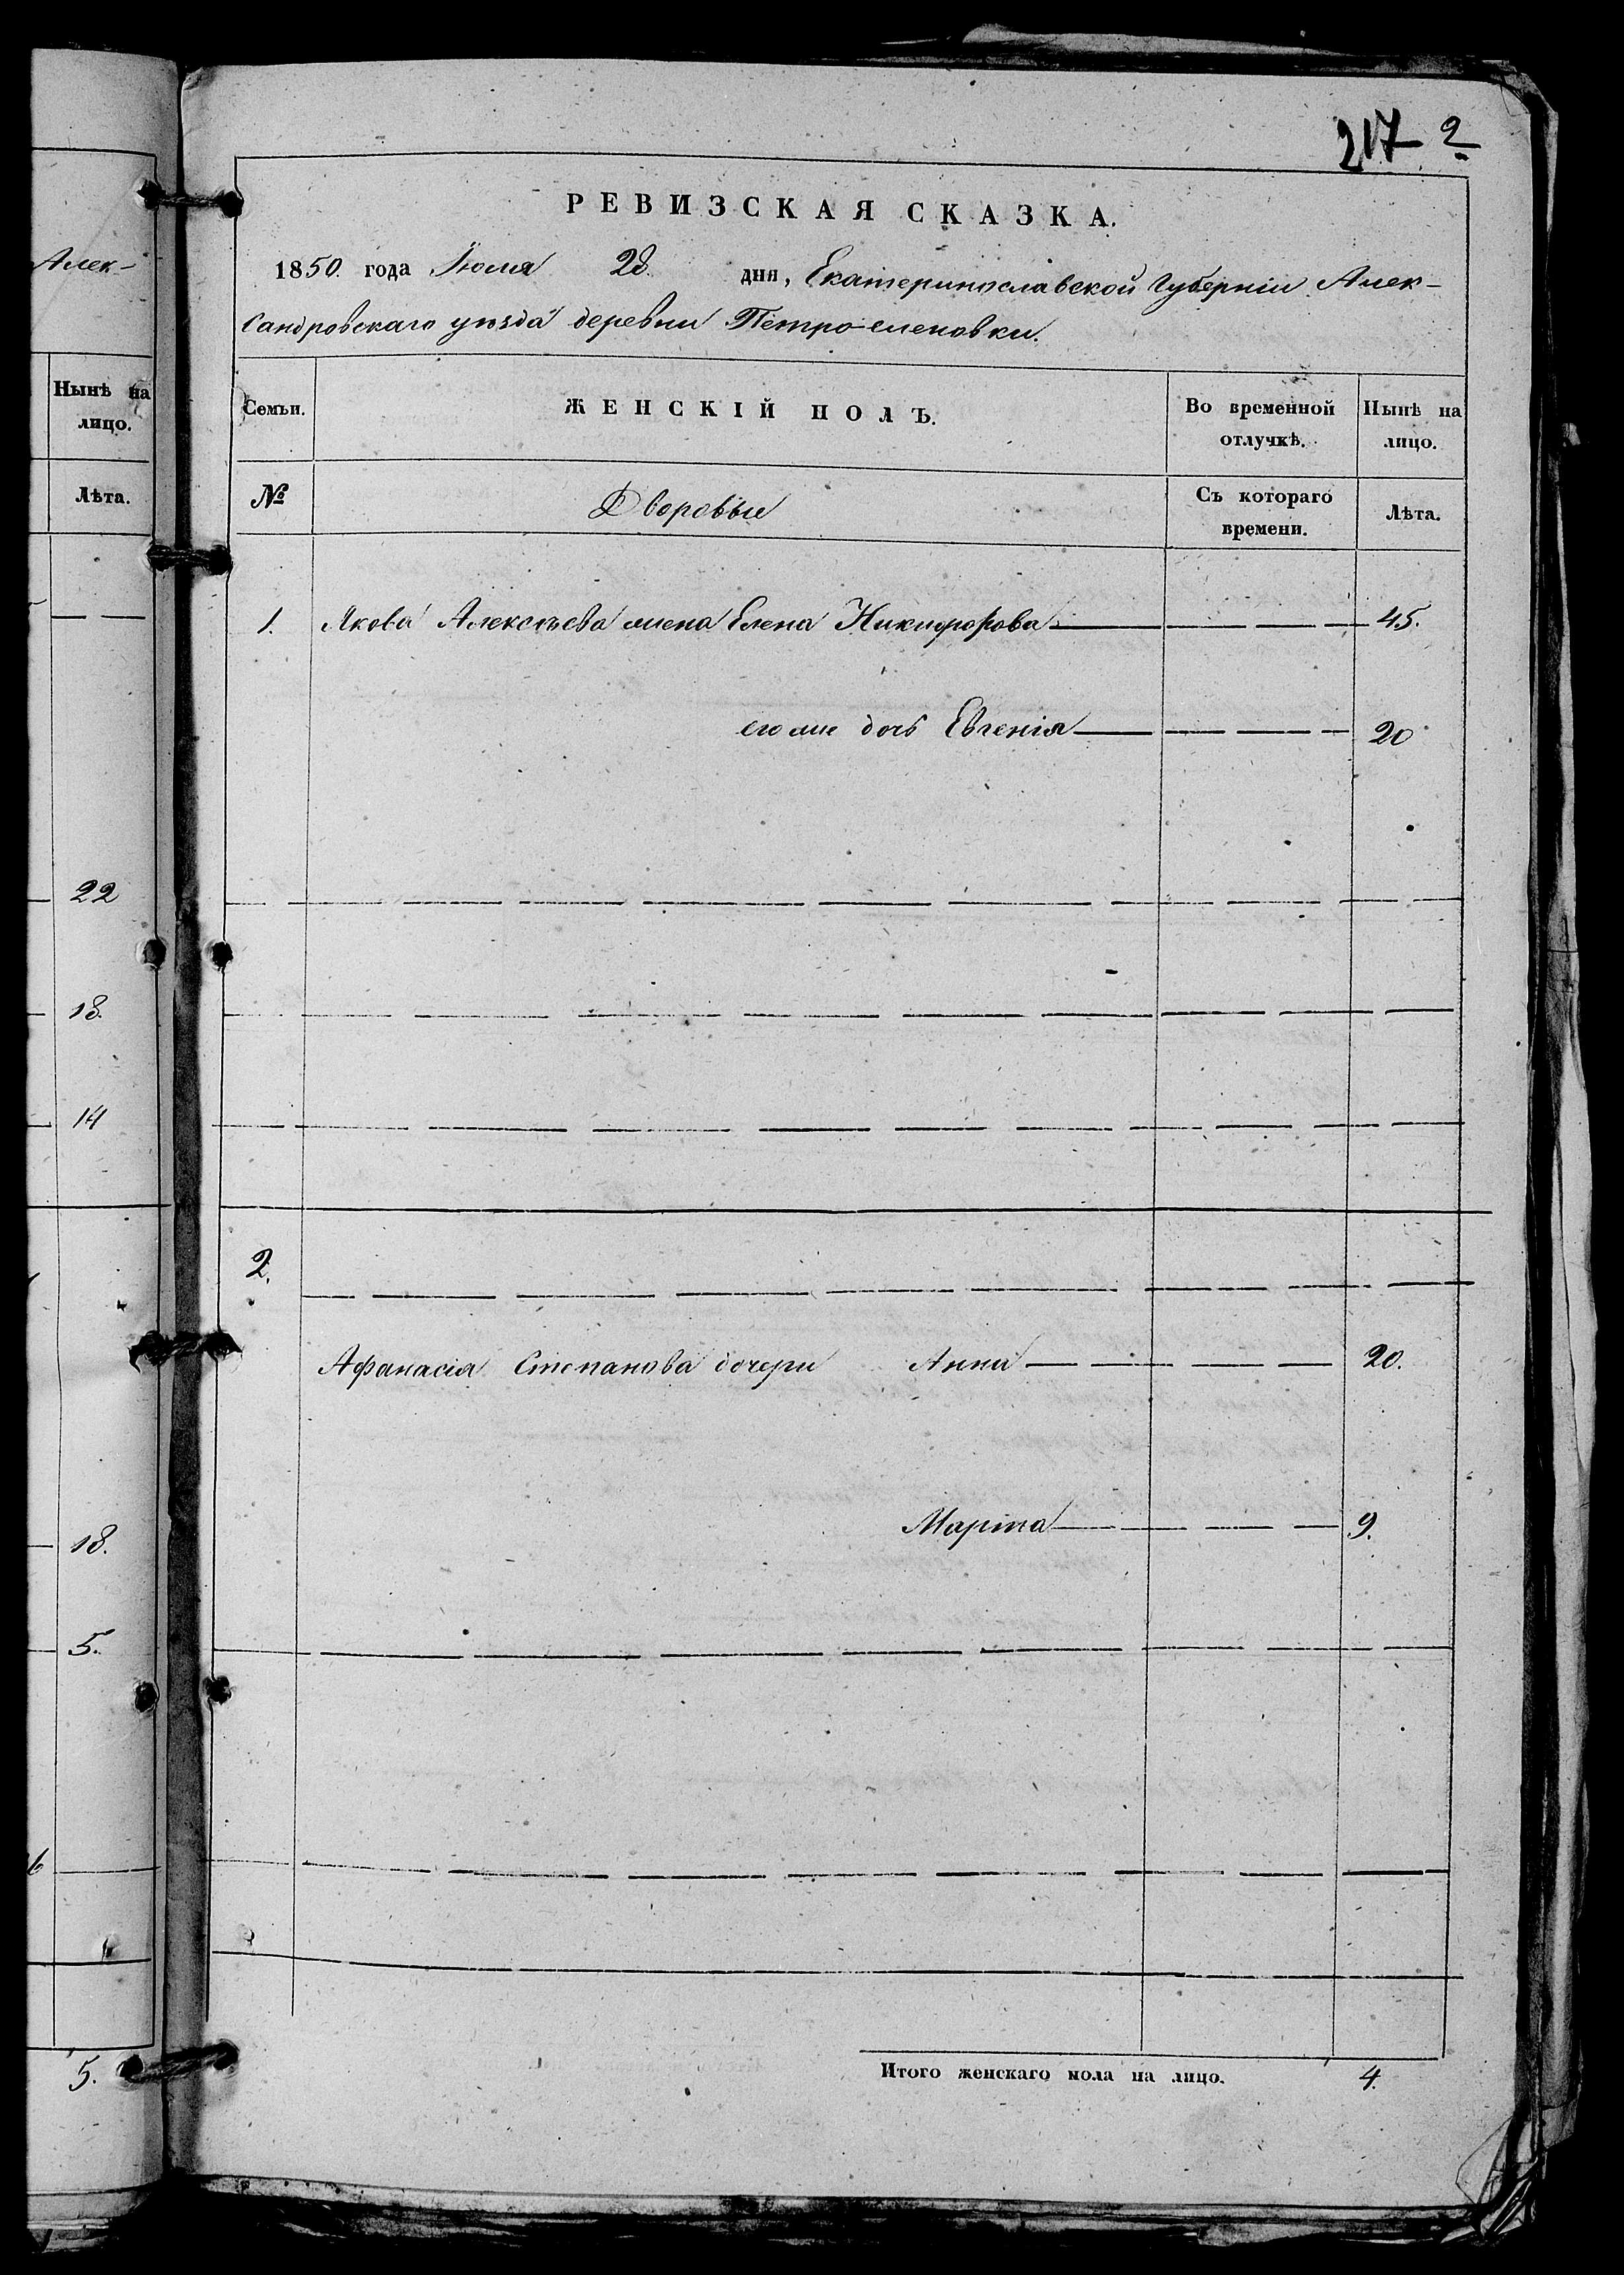 Алек-
Нынѣ на
лицо.
Лѣта.
22
18.
14
18.
5.
5.
217 2
РЕВИЗСКАЯ СКАЗКА.
1850. года Июля 28 дня, Екатеринославской Губерніи Алек-
сандровскаго уѣзда деревни Петро-еленовки.
Семьи. ЖЕНСКІЙ ПОЛЪ. Во временной Нынѣ на
отлучкѣ. лицо.
№ Дворовыи Съ котораго Лѣта.
времени.
1. Якова Алексѣева жена Елена Никифорова 45.
его же дочь Евгенія 20
2.
Афанасія Степанова дочери Анна 20.
Марфа 9.
Итого женскаго пола на лицо. 4.